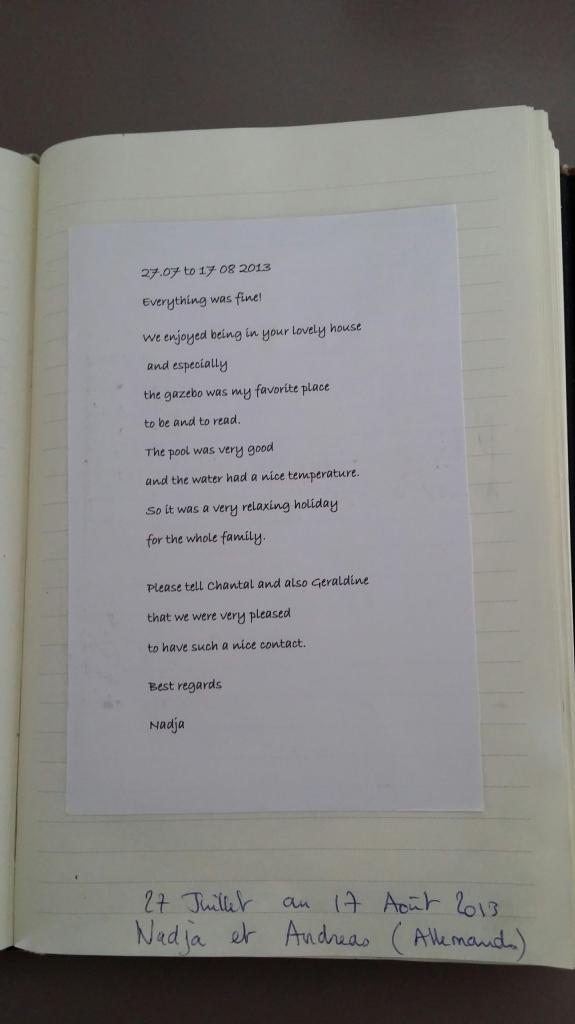 27.07 to 17 08 2013
Everything was fine!
We enjoyed being in your lovely house
and especially
the gazebo was my favorite place
to be and to read.
The pool was very good
and the water had a nice temperature.
So it was a very relaxing holiday
for the whole family.
Please tell Chantal and also Geraldine
that we were very pleased
to have such a nice contact.
Best regards
Nadja
27 Juillet au 17 Août 2013
Nadja et Andreas (Allemands)